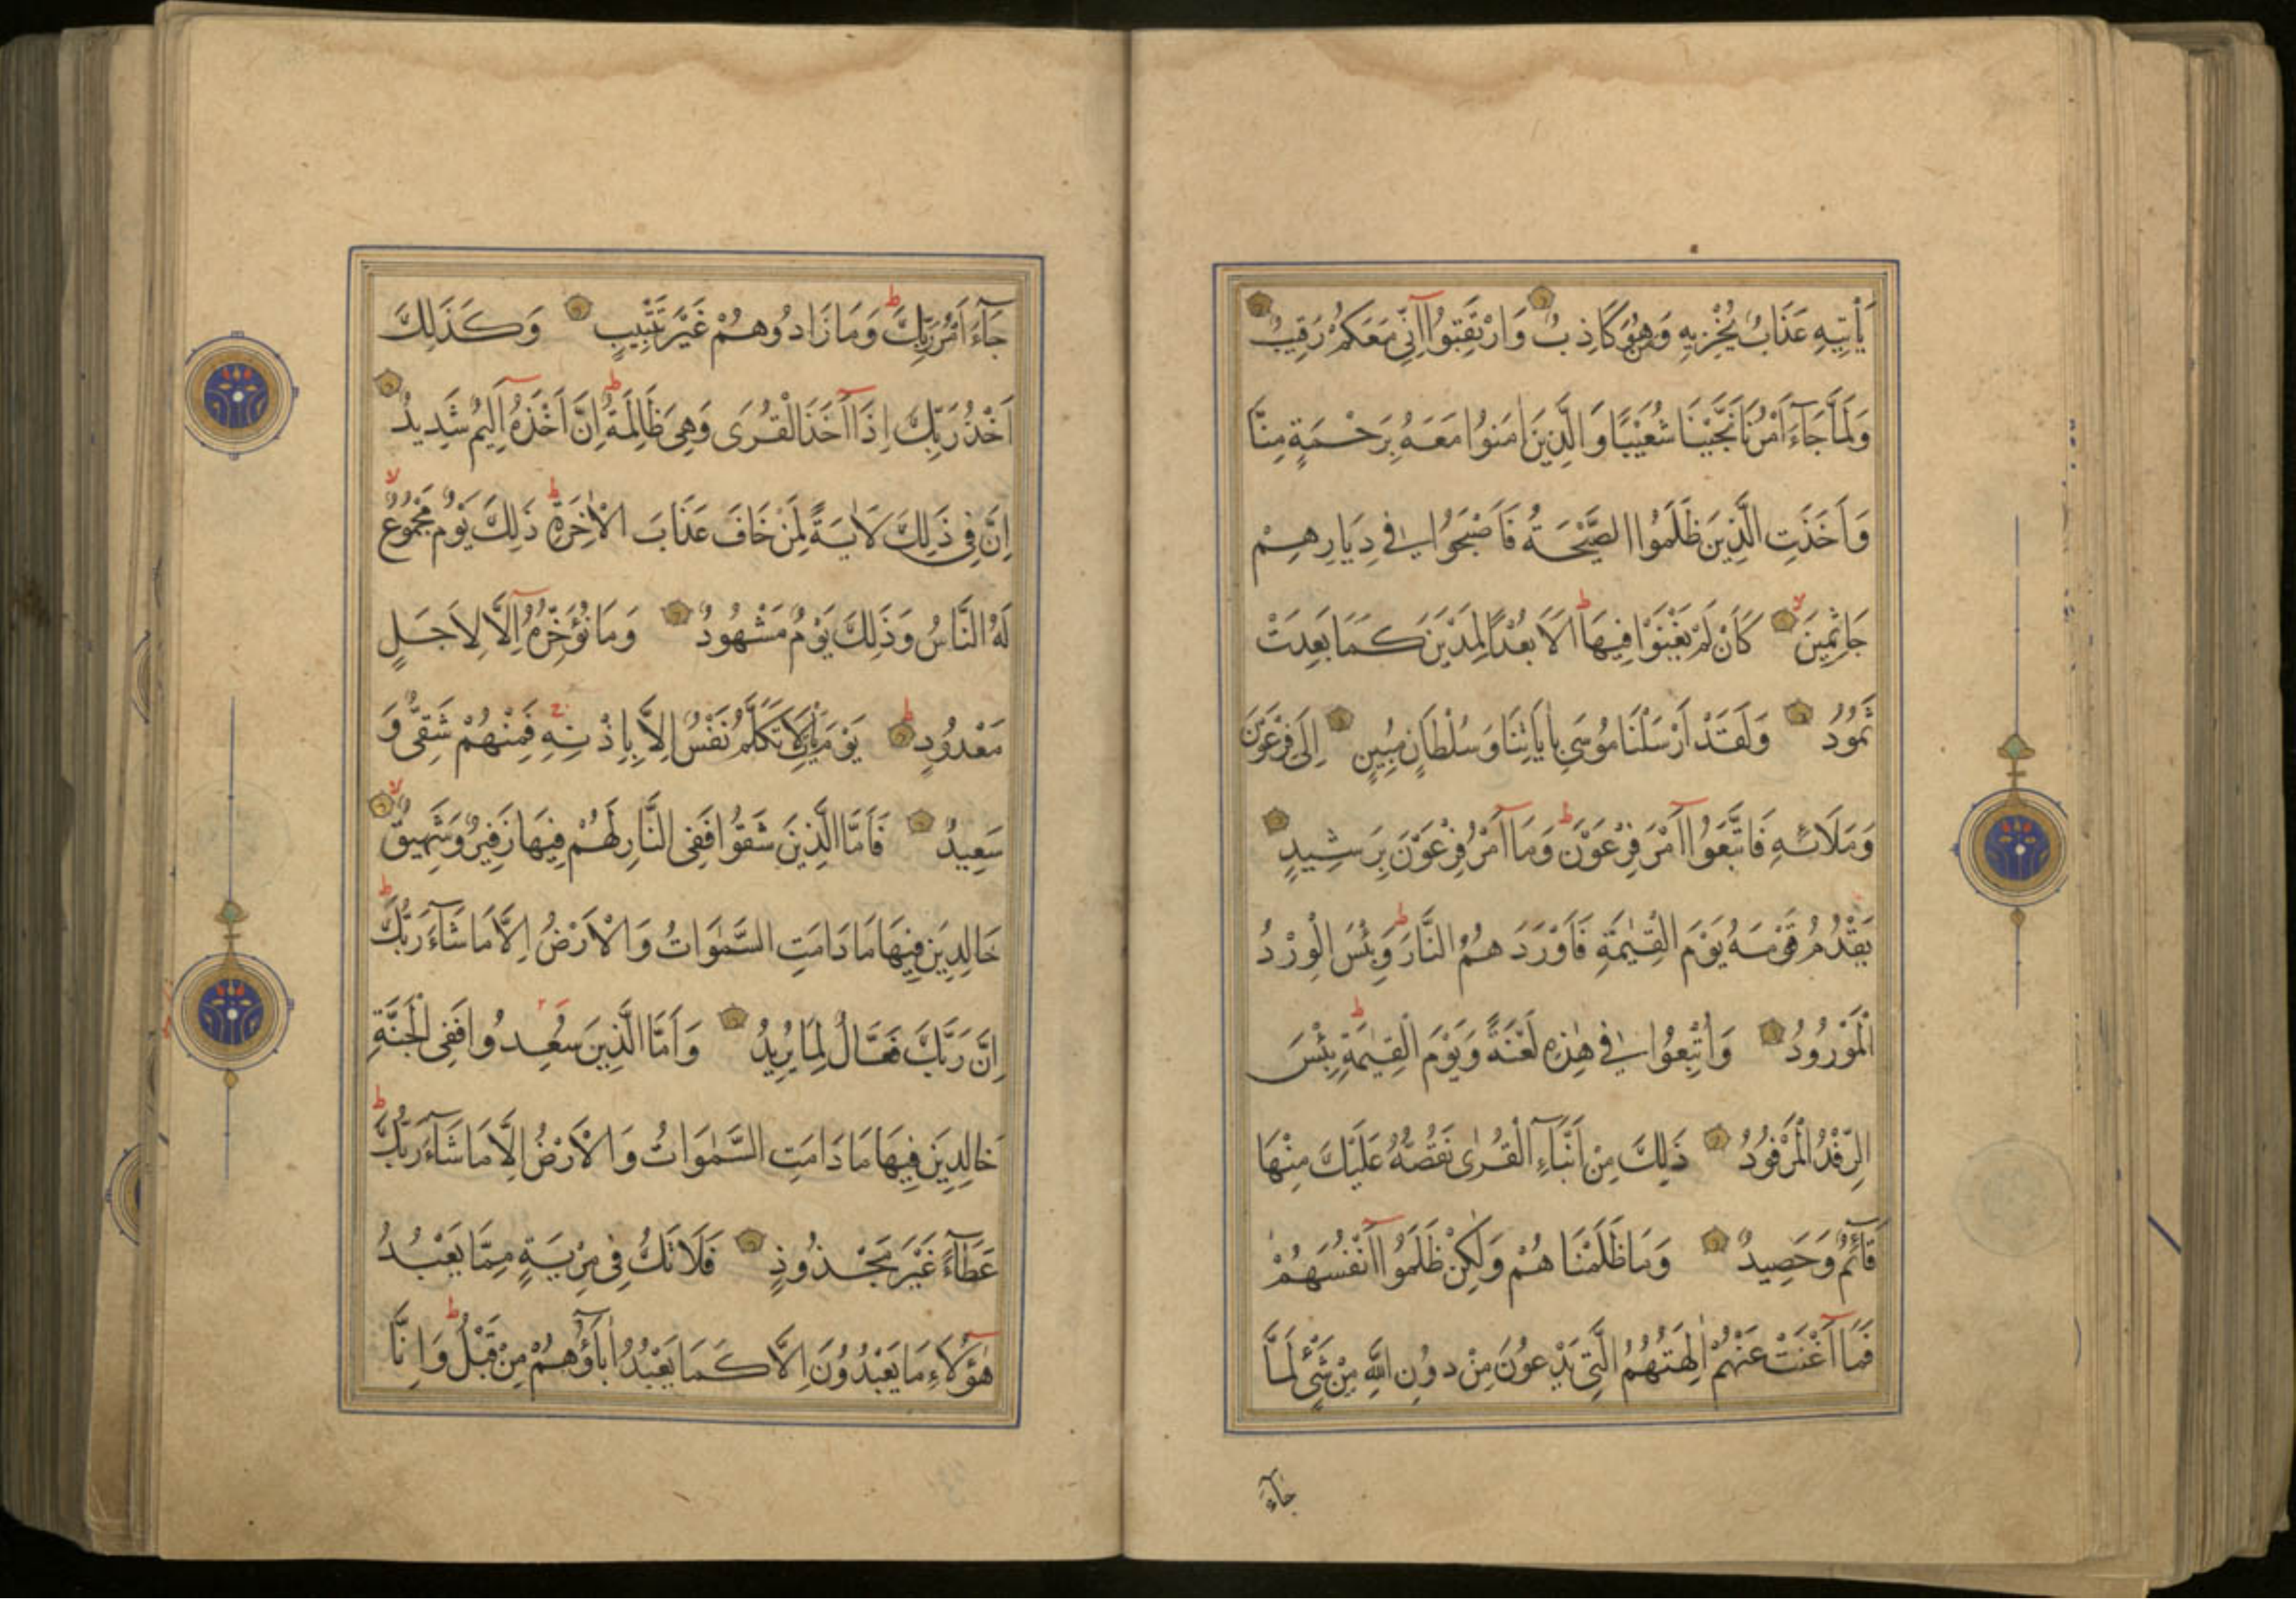 يَأْتِيهِ عَذَابٌ يُخْزِيهِ وَهُوَ كَاذِبٌ وَارْتَقِبُوا اِنِّي مَعَكُمْ رَقِيبٌ
وَلَمَّا جَآءَ اَمْرُنَا نَجَّيْنَا شُعَيْبًا وَالَّذِينَ اٰمَنُوا مَعَهُ بِرَحْمَةٍ مِنَّا
وَاَخَذَتِ الَّذِينَ ظَلَمُوا الصَّيْحَةُ فَاَصْبَحُوا فِي دِيَارِهِمْ
جَاثِمِينَ كَاَنْ لَمْ يَغْنَوْا فِيهَا ط اَلَا بُعْدًا لِمَدْيَنَ كَمَا بَعِدَتْ
ثَمُودُ وَلَقَدْ اَرْسَلْنَا مُوسَى بِاٰيَاتِنَا وَسُلْطَانٍ مُبِينٍ اِلَى فِرْعَوْنَ
وَمَلَائِهِ فَاتَّبَعُوا اَمْرَ فِرْعَوْنَ ط وَمَا اَمْرُ فِرْعَوْنَ بِرَشِيدٍ
يَقْدُمُ قَوْمَهُ يَوْمَ الْقِيٰمَةِ فَاَوْرَدَهُمُ النَّارَ ط وَبِئْسَ الْوِرْدُ
الْمَوْرُودُ وَاُتْبِعُوا فِي هٰذِهِ لَعْنَةً وَيَوْمَ الْقِيٰمَةِ ط بِئْسَ
الرِّفْدُ الْمَرْفُودُ ذَلِكَ مِنْ اَنْبَآءِ الْقُرٰى نَقُصُّهُ عَلَيْكَ مِنْهَا
قَآئِمٌ وَحَصِيدٌ وَمَا ظَلَمْنَاهُمْ وَلَكِنْ ظَلَمُوا اَنْفُسَهُمْ
فَمَا اَغْنَتْ عَنْهُمْ اٰلِهَتُهُمُ الَّتِي يَدْعُونَ مِنْ دُونِ اللّٰهِ مِنْ شَيْءٍ لَمَّا
جَآءَ
جَآءَ اَمْرُ رَبِّكَ ط وَمَا زَادُوهُمْ غَيْرَ تَتْبِيبٍ وَكَذَلِكَ
اَخْذُ رَبِّكَ اِذَا اَخَذَ الْقُرَى وَهِيَ ظَالِمَةٌ ط اِنَّ اَخْذَهُ اَلِيمٌ شَدِيدٌ
اِنَّ فِي ذَلِكَ لَاٰيَةً لِمَنْ خَافَ عَذَابَ الْاٰخِرَةِ ط ذَلِكَ يَوْمٌ مَجْمُوعٌ لا
لَهُ النَّاسُ وَذَلِكَ يَوْمٌ مَشْهُودٌ وَمَا نُؤَخِّرُهُ اِلَّا لِاَجَلٍ
مَعْدُودٍ ط يَوْمَ يَأْتِ لَا تَكَلَّمُ نَفْسٌ اِلَّا بِاِذْنِهِ ج فَمِنْهُمْ شَقِيٌّ وَ
سَعِيدٌ فَاَمَّا الَّذِينَ شَقُوا فَفِي النَّارِ لَهُمْ فِيهَا زَفِيرٌ وَشَهِيقٌ لا
خَالِدِينَ فِيهَا مَا دَامَتِ السَّمٰوَاتُ وَالْاَرْضُ اِلَّا مَا شَآءَ رَبُّكَ ط
اِنَّ رَبَّكَ فَعَّالٌ لِمَا يُرِيدُ وَاَمَّا الَّذِينَ سُعِدُوا فَفِي الْجَنَّةِ
خَالِدِينَ فِيهَا مَا دَامَتِ السَّمٰوَاتُ وَالْاَرْضُ اِلَّا مَا شَآءَ رَبُّكَ ط
عَطَآءً غَيْرَ مَجْذُوذٍ فَلَا تَكُ فِي مِرْيَةٍ مِمَّا يَعْبُدُ
هٰؤُلَاءِ مَا يَعْبُدُونَ اِلَّا كَمَا يَعْبُدُ اٰبَآؤُهُمْ مِنْ قَبْلُ ط وَاِنَّا